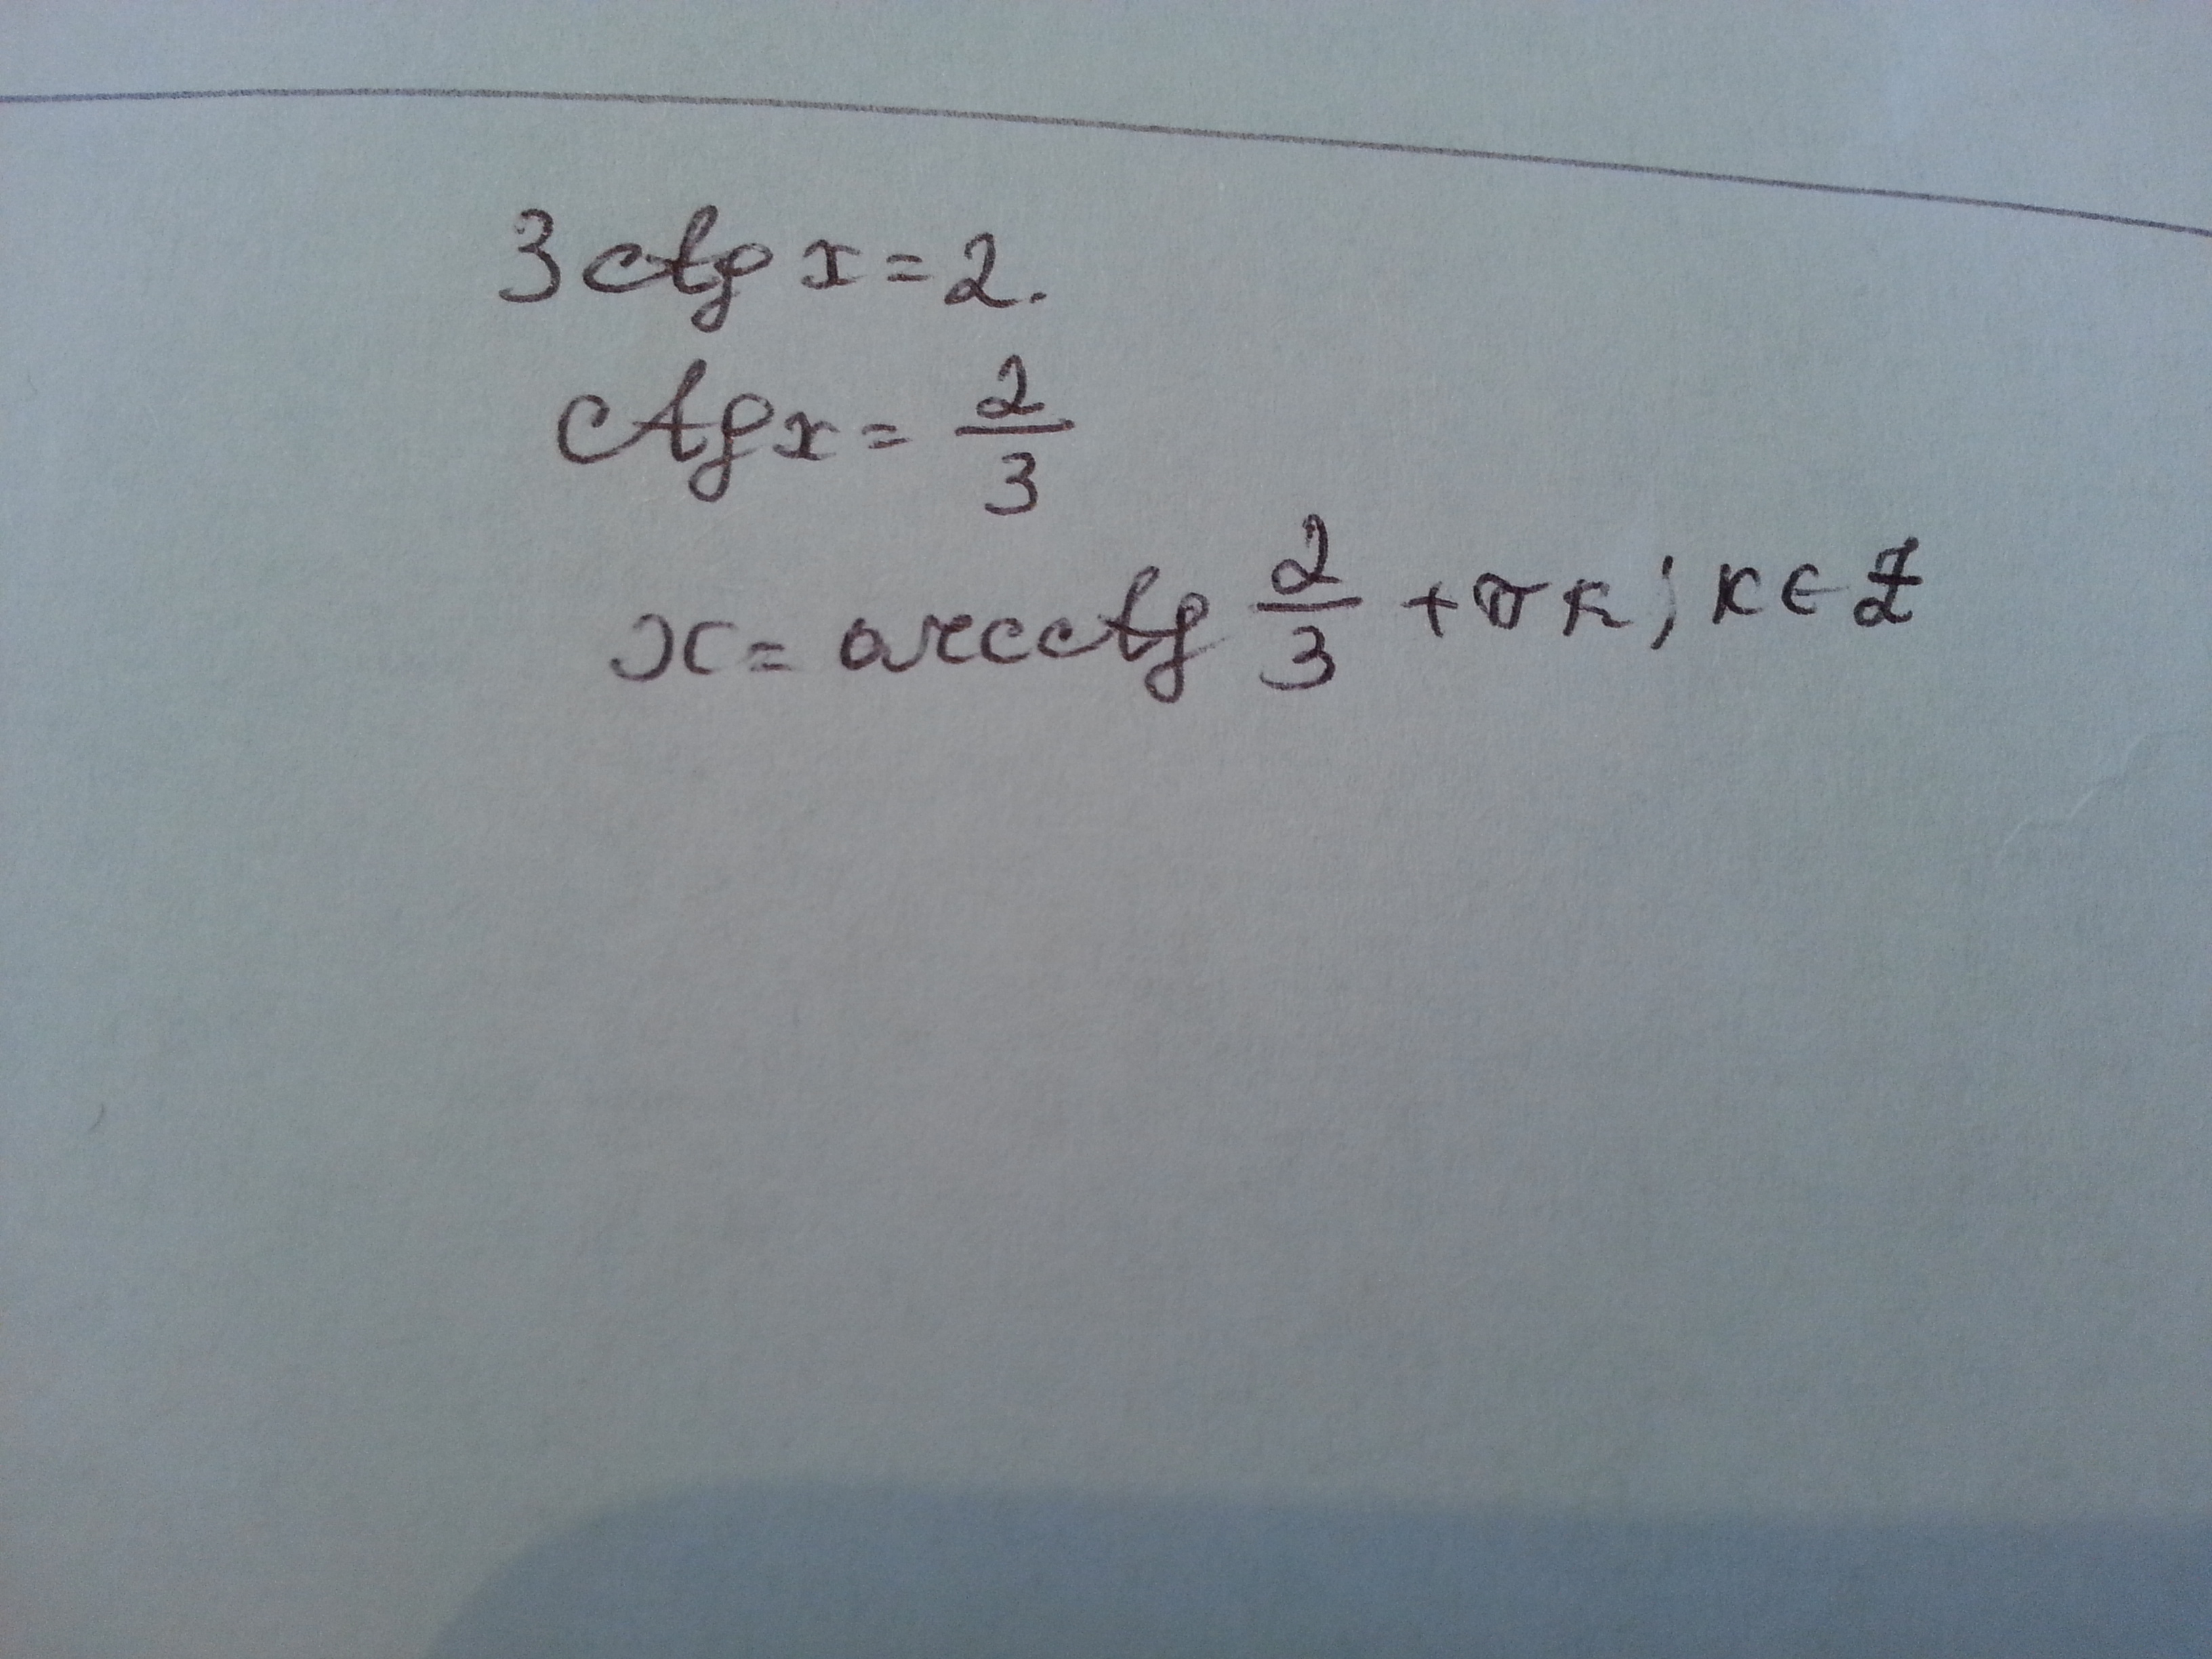 3 ctg x = 2.
ctg x = 2/3
x = arcctg 2/3 + πk; k ∈ Z